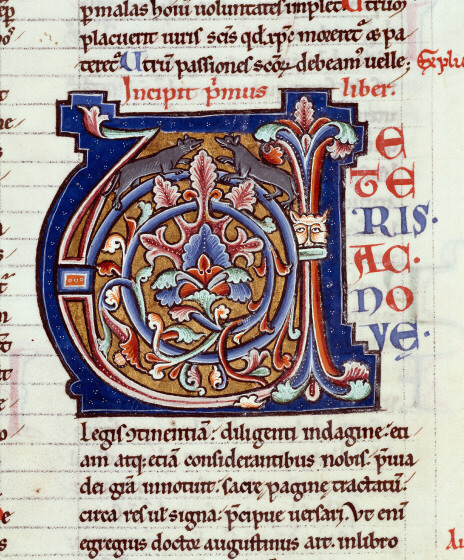 pmalas horũ voluntates implet Utrum
placuerit viris scis qd xpc moreret & pa
teret Utrũ passiones scoꝝ debeam velle;
Incipit pmus liber.
V
ETE
RIS.
AC.
NO
VE.
legis ꝯtinentiã: diligenti indagine. eti
am atq; etiã considerantibus nobis. pvia
dei grã innotuit. sacre pagine tractatũ.
circa res ul signa. pcipue versari. Vt eni
egregius doctor augustinus ait. in libro